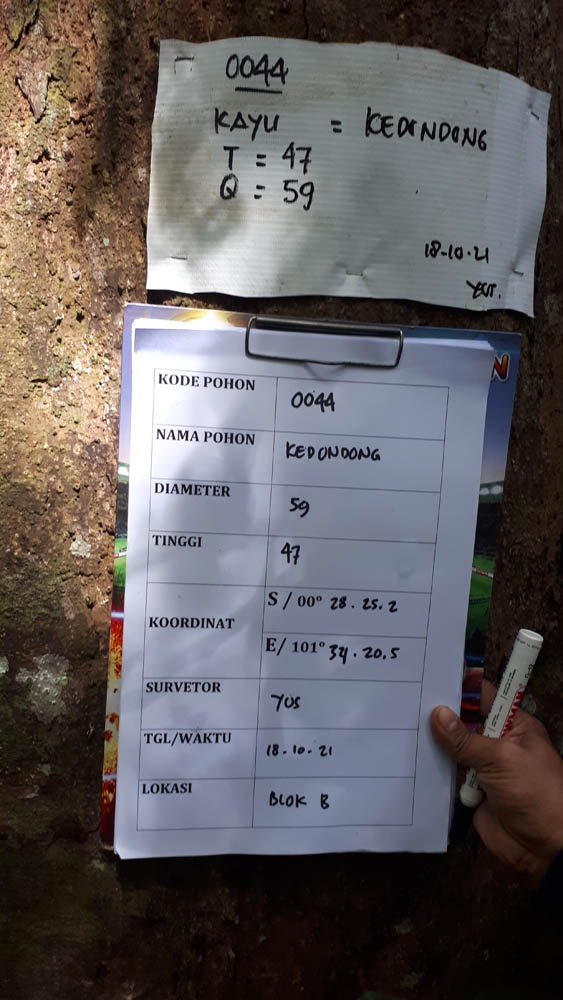 0044
KAYU = KEDONDONG
T = 47
Q = 59
18-10-21
N
KODE POHON 0044
NAMA POHON KEDONDONG
DIAMETER 59
TINGGI 47
KOORDINAT S / 00° 28 . 25 . 2
E/ 101° 34 . 20.5
SURVETOR YUS
TGL/WAKTU 18 - 10 - 21
LOKASI BLOK B